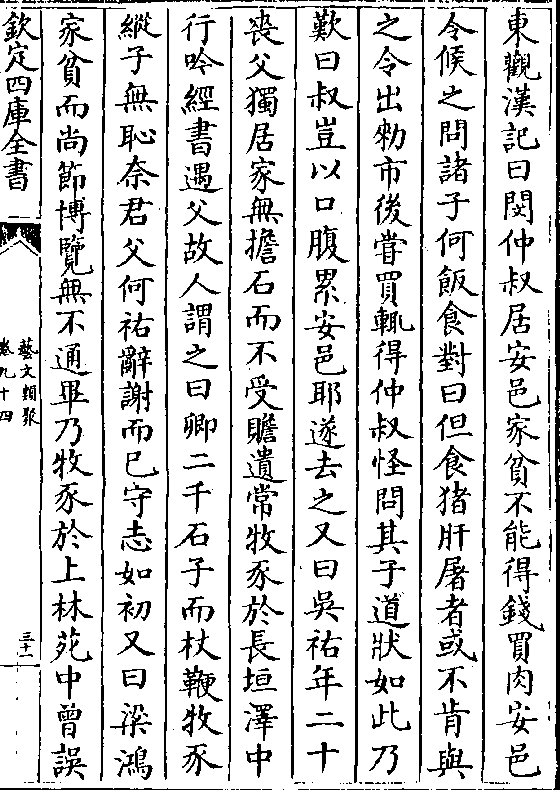 東觀漢記曰閔仲叔居安邑家貧不能得錢買肉安邑
令候之問諸子何飯食對曰但食猪肝屠者或不肯與
之令出勑市後嘗買輒得仲叔怪問其子道狀如此乃
歎曰叔豈以口腹累安邑耶遂去之又曰吳祐年二十
喪父獨居家無擔石而不受贍遺常牧豕於長垣澤中
行吟經書遇父故人謂之曰卿二千石子而杖鞭牧豕
縱子無恥奈君父何祐辭謝而已守志如初又曰梁鴻
家貧而尚節博覽無不通畢乃牧豕於上林苑中曾誤
欽定四庫全書
藝文類聚
卷九十四
三十一